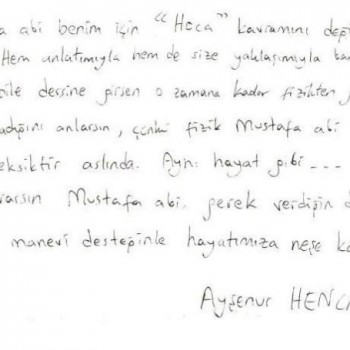 a abi benim için "Hoca" kavramını
Hem anlatımıyla hem de size yaklaşımıyla
ile dersine girsen o zamana kadar fizikten
anlarsın, çünkü fizik Mustafa abi
eksiktir aslında. Aynı hayat gibi ---
varsın Mustafa abi, gerek verdiğin
manevi desteğinle hayatımıza neşe
Ayşenur